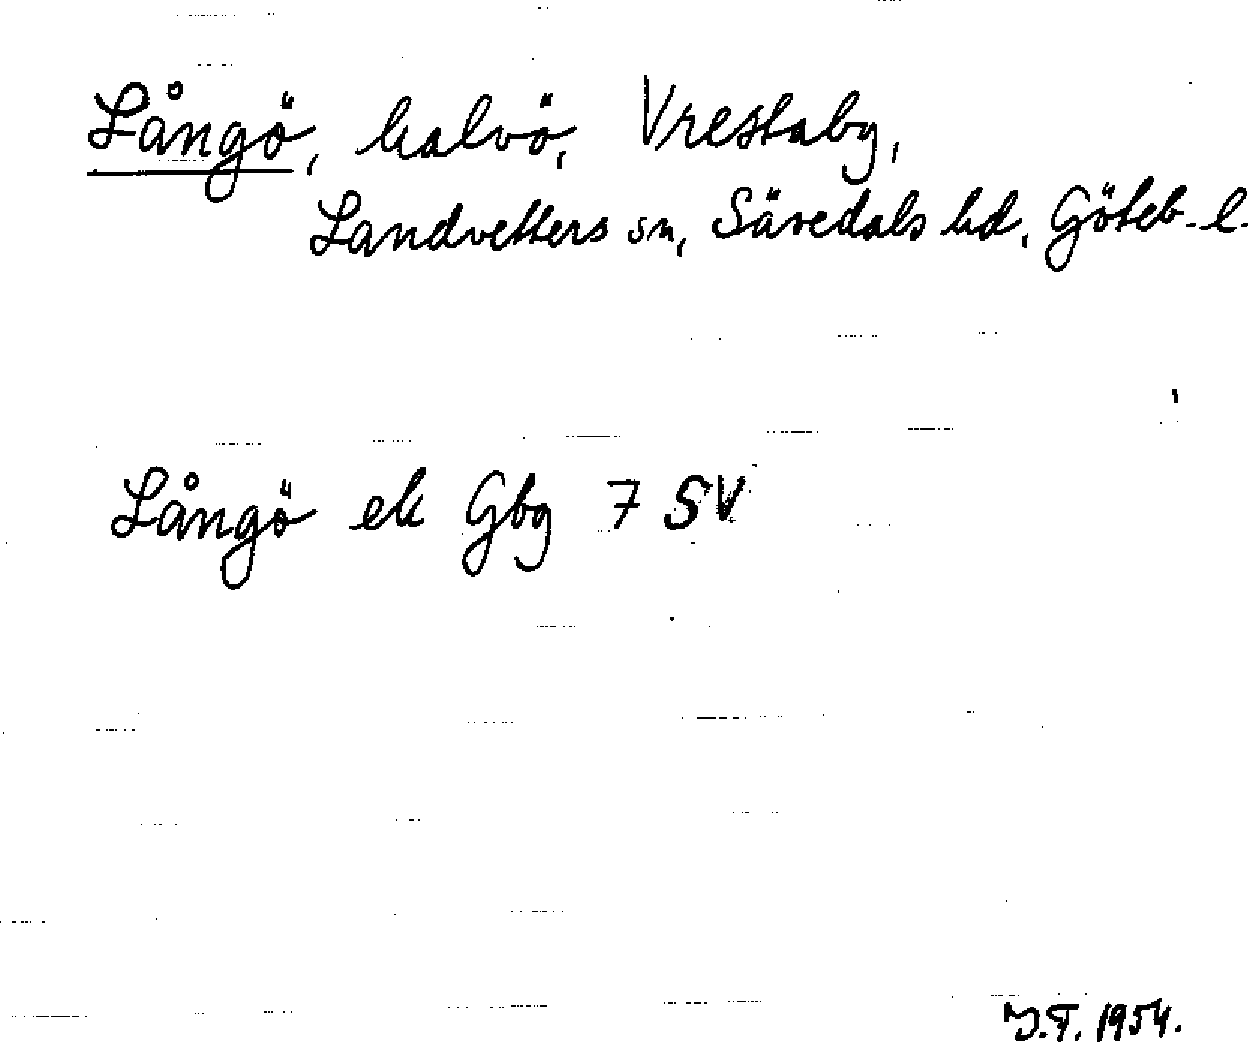 Långö, halvö, Vrestaby,
Landvetters sn, Sävedals hd, Göteb. l.
Långö ek Gbg 7 SV
J.F. 1954.